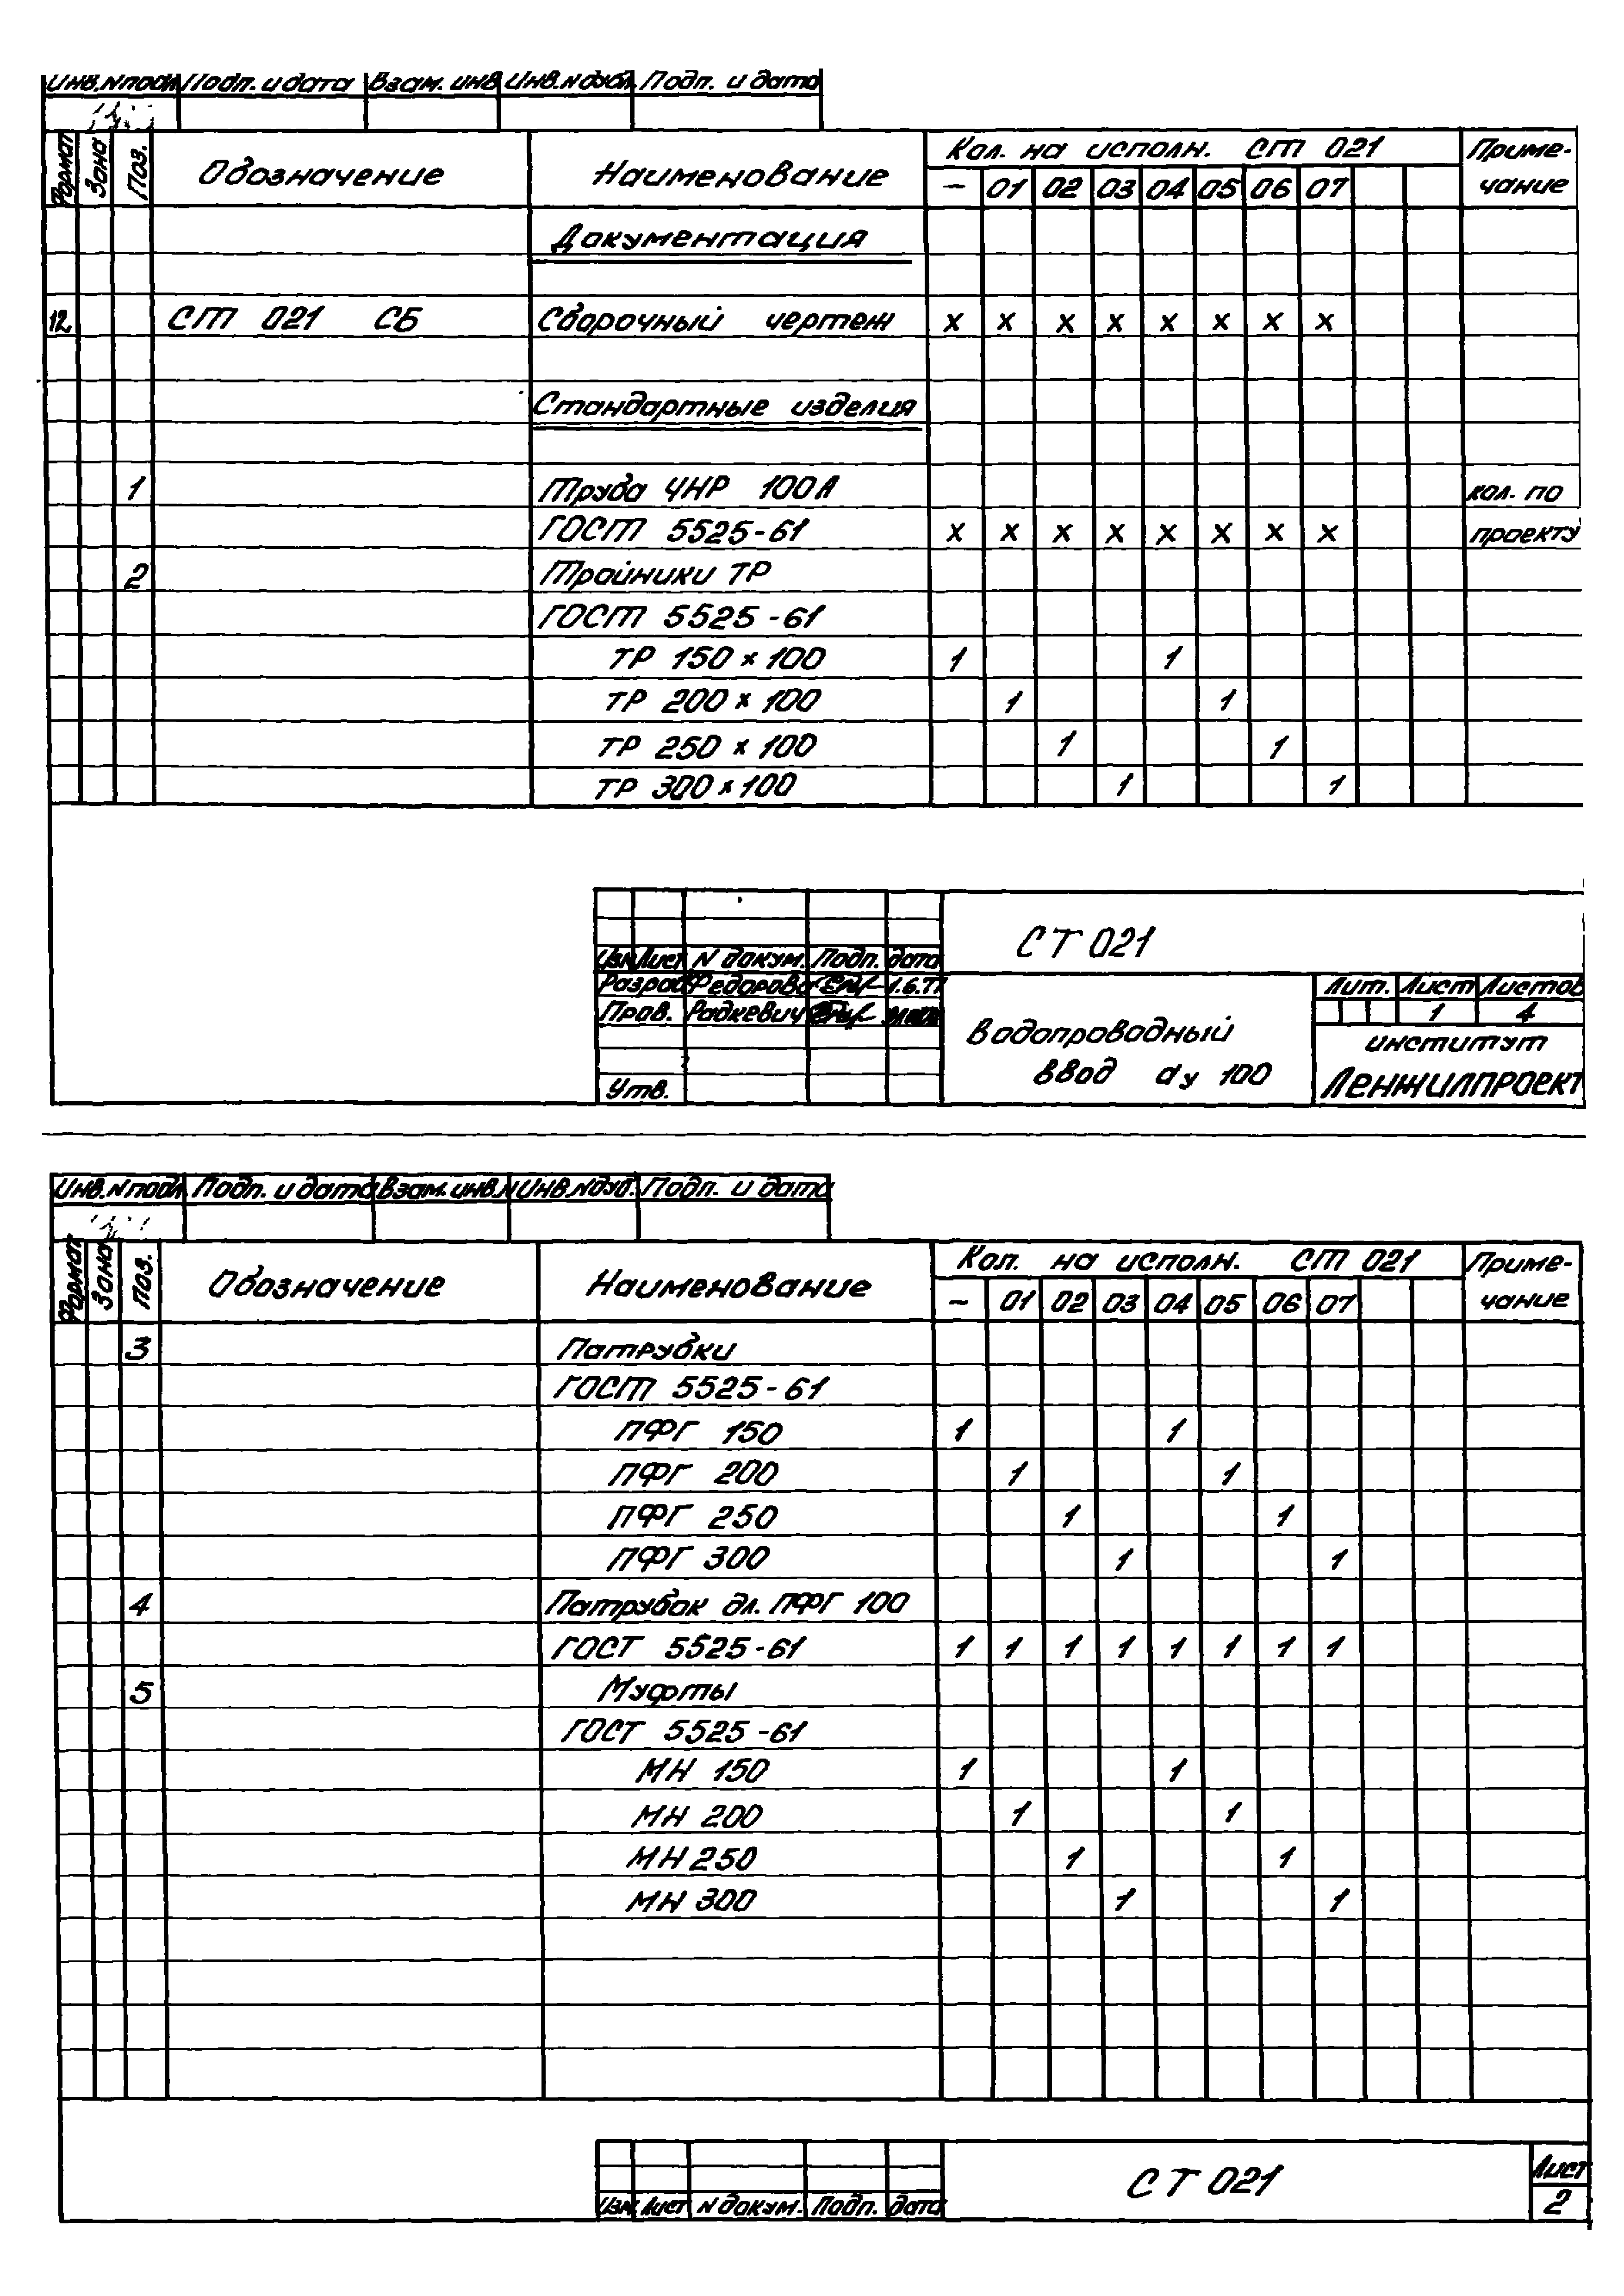 Инв.N подл. Подп. и дата Взам. инв. Инв.N дубл. Подп. и дата
Формат Зона Поз. Обозначение Наименование Кол. на исполн. СТ 021 Приме-
- 01 02 03 04 05 06 07 чание
Документация
12 СТ 021 СБ Сборочный чертеж х х х х х х х х
Стандартные изделия
1 Труба ЧНР 100А кол. по
ГОСТ 5525-61 х х х х х х х х проекту
2 Тройники ТР
ГОСТ 5525-61
ТР 150х100 1 1
ТР 200х100 1 1
ТР 250х100 1 1
ТР 300х100 1 1
СТ 021
Изм Лист N докум. Подп. дата
Разраб Федорова 1.6.77 Лит. Лист Листов
Пров. Радкевич 1 4
Водопроводный институт
ввод dу 100 ЛЕНЖИЛПРОЕКТ
Утв.
Инв.N подл. Подп. и дата Взам. инв.N Инв.N дуб. Подп. и дата
Формат Зона Поз. Обозначение Наименование Кол. на исполн. СТ 021 Приме-
- 01 02 03 04 05 06 07 чание
3 Патрубки
ГОСТ 5525-61
ПФГ 150 1 1
ПФГ 200 1 1
ПФГ 250 1 1
ПФГ 300 1 1
4 Патрубок дл. ПФГ 100
ГОСТ 5525-61 1 1 1 1 1 1 1 1
5 Муфты
ГОСТ 5525-61
МН 150 1 1
МН 200 1 1
МН 250 1 1
МН 300 1 1
СТ 021 Лист
Изм Лист N докум. Подп. дата 2